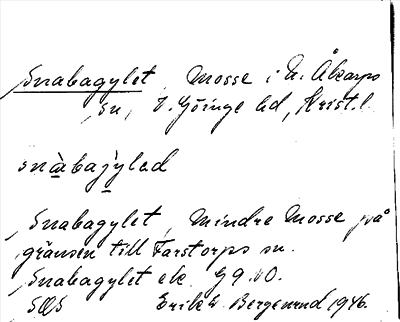 Snabagylet, Mosse i N. Åkarps
sn, V. Göinge hd, Krist. l.
snàbajỳlad
Snabagylet, Mindre Mosse på
gränsen till Farstorps sn.
Snabagylet ek. G 9.
SOS Erik W. Bergenrud 1946.